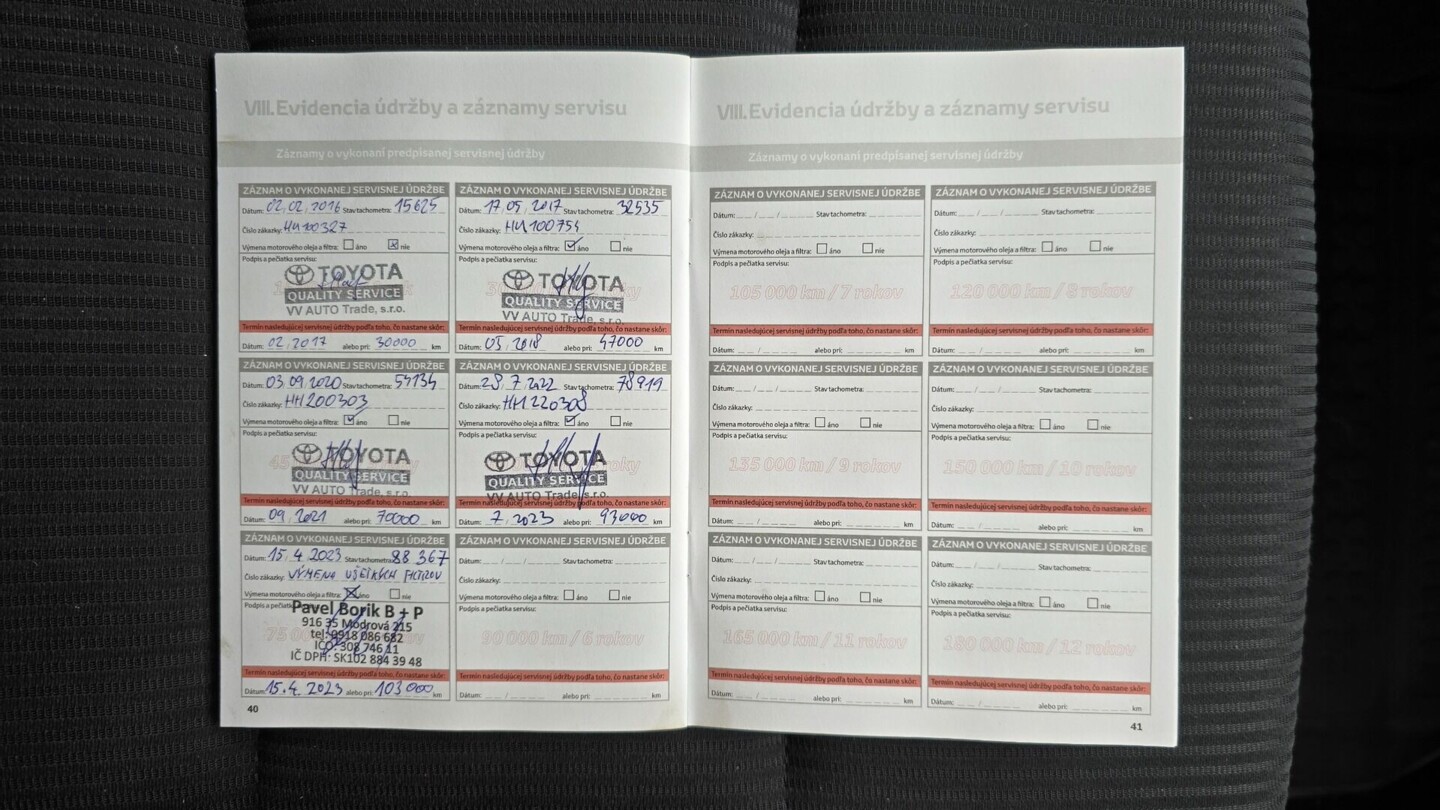 VIII. Evidencia údržby a záznamy servisu
Záznamy o vykonaní predpísanej servisnej údržby
ZÁZNAM O VYKONANEJ SERVISNEJ ÚDRŽBE
Dátum: 02.02.2016 Stav tachometra: 15625
Číslo zákazky: HH100327
Výmena motorového oleja a filtra: áno nie
Podpis a pečiatka servisu:
TOYOTA
QUALITY SERVICE
VV AUTO Trade, s.r.o.
Termín nasledujúcej servisnej údržby podľa toho, čo nastane skôr:
Dátum: 02.2017 alebo pri: 30000 km
ZÁZNAM O VYKONANEJ SERVISNEJ ÚDRŽBE
Dátum: 17.05.2017 Stav tachometra: 32535
Číslo zákazky: HH100754
Výmena motorového oleja a filtra: áno nie
Podpis a pečiatka servisu:
TOYOTA
QUALITY SERVICE
VV AUTO Trade, s.r.o.
Termín nasledujúcej servisnej údržby podľa toho, čo nastane skôr:
Dátum: 05.2018 alebo pri: 47000 km
ZÁZNAM O VYKONANEJ SERVISNEJ ÚDRŽBE
Dátum: 03.09.2020 Stav tachometra: 54134
Číslo zákazky: HH200303
Výmena motorového oleja a filtra: áno nie
Podpis a pečiatka servisu:
TOYOTA
QUALITY SERVICE
VV AUTO Trade, s.r.o.
Termín nasledujúcej servisnej údržby podľa toho, čo nastane skôr:
Dátum: 09.2021 alebo pri: 70000 km
ZÁZNAM O VYKONANEJ SERVISNEJ ÚDRŽBE
Dátum: 28.7.2022 Stav tachometra: 78919
Číslo zákazky: HH220308
Výmena motorového oleja a filtra: áno nie
Podpis a pečiatka servisu:
TOYOTA
QUALITY SERVICE
VV AUTO Trade, s.r.o.
Termín nasledujúcej servisnej údržby podľa toho, čo nastane skôr:
Dátum: 7.2023 alebo pri: 93000 km
ZÁZNAM O VYKONANEJ SERVISNEJ ÚDRŽBE
Dátum: 15.4.2023 Stav tachometra: 88 367
Číslo zákazky: VÝMENA VŠETKÝCH FILTROV
Výmena motorového oleja a filtra: áno nie
Podpis a pečiatka
Pavel Borik B + P
916 35 Modrová 215
tel: 0918 086 682
IČO: 308 746 11
IČ DPH: SK102 884 39 48
Termín nasledujúcej servisnej údržby podľa toho, čo nastane skôr:
Dátum: 15.4.2023 alebo pri: 103 000 km
ZÁZNAM O VYKONANEJ SERVISNEJ ÚDRŽBE
Dátum: Stav tachometra:
Číslo zákazky:
Výmena motorového oleja a filtra: áno nie
Podpis a pečiatka servisu:
90 000 km / 6 rokov
Termín nasledujúcej servisnej údržby podľa toho, čo nastane skôr:
Dátum: alebo pri: km
40
VIII. Evidencia údržby a záznamy servisu
Záznamy o vykonaní predpísanej servisnej údržby
ZÁZNAM O VYKONANEJ SERVISNEJ ÚDRŽBE
Dátum: Stav tachometra:
Číslo zákazky:
Výmena motorového oleja a filtra: áno nie
Podpis a pečiatka servisu:
105 000 km / 7 rokov
Termín nasledujúcej servisnej údržby podľa toho, čo nastane skôr:
Dátum: alebo pri: km
ZÁZNAM O VYKONANEJ SERVISNEJ ÚDRŽBE
Dátum: Stav tachometra:
Číslo zákazky:
Výmena motorového oleja a filtra: áno nie
Podpis a pečiatka servisu:
120 000 km / 8 rokov
Termín nasledujúcej servisnej údržby podľa toho, čo nastane skôr:
Dátum: alebo pri: km
ZÁZNAM O VYKONANEJ SERVISNEJ ÚDRŽBE
Dátum: Stav tachometra:
Číslo zákazky:
Výmena motorového oleja a filtra: áno nie
Podpis a pečiatka servisu:
135 000 km / 9 rokov
Termín nasledujúcej servisnej údržby podľa toho, čo nastane skôr:
Dátum: alebo pri: km
ZÁZNAM O VYKONANEJ SERVISNEJ ÚDRŽBE
Dátum: Stav tachometra:
Číslo zákazky:
Výmena motorového oleja a filtra: áno nie
Podpis a pečiatka servisu:
150 000 km / 10 rokov
Termín nasledujúcej servisnej údržby podľa toho, čo nastane skôr:
Dátum: alebo pri: km
ZÁZNAM O VYKONANEJ SERVISNEJ ÚDRŽBE
Dátum: Stav tachometra:
Číslo zákazky:
Výmena motorového oleja a filtra: áno nie
Podpis a pečiatka servisu:
165 000 km / 11 rokov
Termín nasledujúcej servisnej údržby podľa toho, čo nastane skôr:
Dátum: alebo pri: km
ZÁZNAM O VYKONANEJ SERVISNEJ ÚDRŽBE
Dátum: Stav tachometra:
Číslo zákazky:
Výmena motorového oleja a filtra: áno nie
Podpis a pečiatka servisu:
180 000 km / 12 rokov
Termín nasledujúcej servisnej údržby podľa toho, čo nastane skôr:
Dátum: alebo pri: km
41